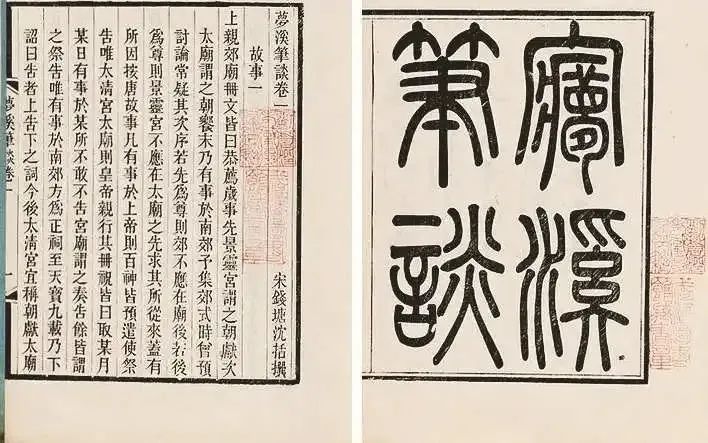 夢溪
筆談
夢溪筆談卷一
宋錢塘沈括撰
故事一
上親郊廟冊文皆曰恭薦歲事先景靈宮謂之朝獻次
太廟謂之朝饗末乃有事於南郊予集郊式時曾預
討論常疑其次序若先爲尊則郊不應在廟後若後
爲尊則景靈宮不應在太廟之先求其所從來蓋有
所因按唐故事凡有事於上帝則百神皆預遣使祭
告唯太清宮太廟則皇帝親行其冊祝皆曰取某月
某日有事於某所不敢不告宮廟謂之奏告餘皆謂
之祭告唯有事於南郊方爲正祠至天寶九載乃下
詔曰告者上告下之詞今後太清宮宜稱朝獻太廟
夢溪筆談卷一
一